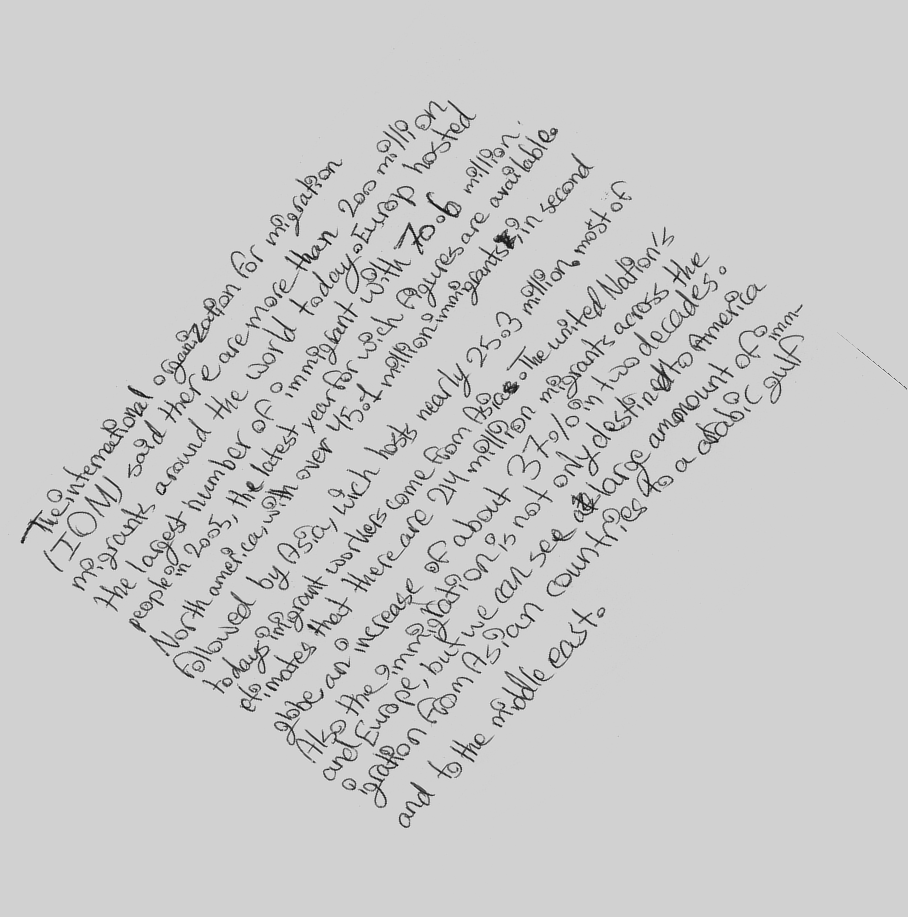 The international organization for migration
(IOM) said there are more than 200 million
migrants around the world today. Europ hosted
the largest number of immigrant with 70.6 million.
people in 2005, the latest year for wich figures are available.
North america, with over 45.1 million immigrants, in second
followed by Asia, wich hosts nearly 25.3 million. most of
todays imigrant workers come from Asia. The united Nation's
etimates that there are 214 million migrants across the
globe, an increase of about 37% in two decades.
Also the immigration is not only destined to America
and Europe, but we can see a large ammount of imm-
igration from Asian countries to a arabic gulf
and to the middle east.